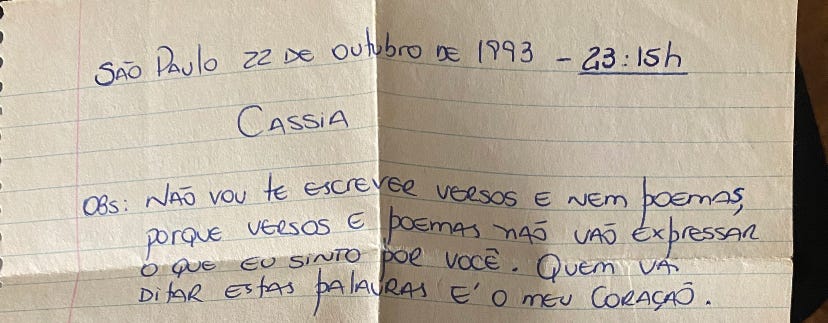 SÃO PAULO 22 DE OUTUBRO DE 1993 - 23:15h
CASSIA
OBS: NÃO VOU TE ESCREVER VERSOS E NEM POEMAS,
PORQUE VERSOS E POEMAS NÃO VÃO EXPRESSAR
O QUE EU SINTO POR VOCÊ. QUEM VA
DITAR ESTAS PALAVRAS E' O MEU CORAÇÃO.